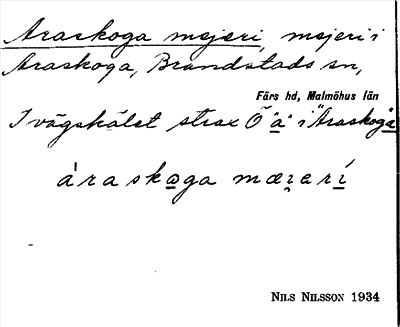 Araskoga mejeri, mejeri i
Araskoga, Brandstads sn,
Färs hd, Malmöhus län
I vägskälet strax Ö "a" i "Araskoga
àraskωga mæi̯erí
NILS NILSSON 1934